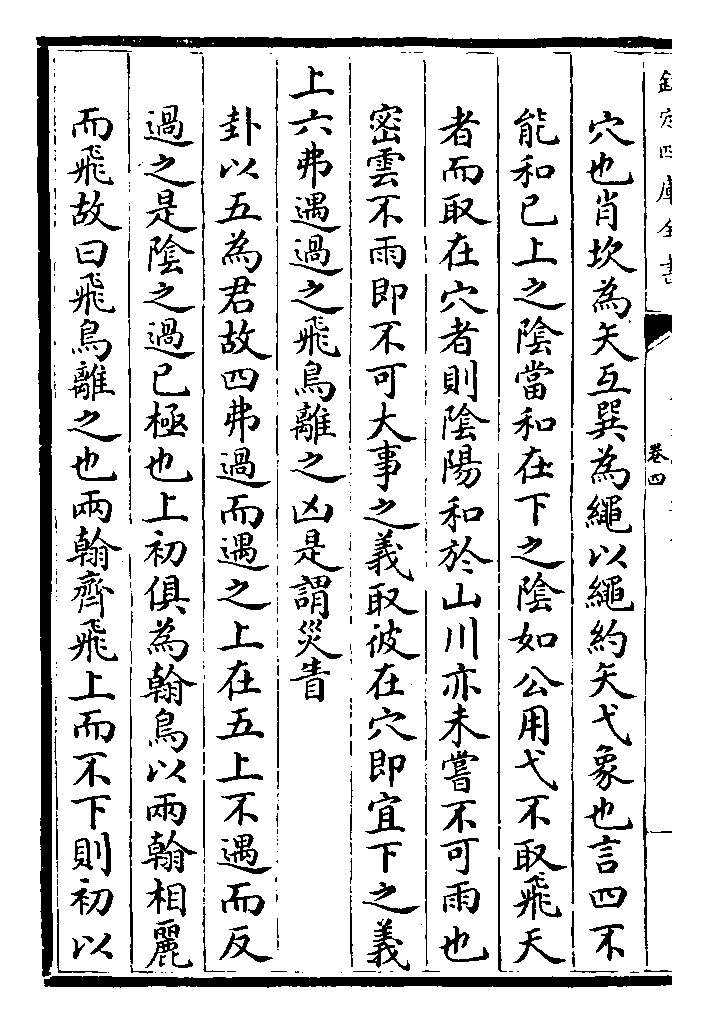 欽定四庫全書
卷四
穴也肖坎為矢互巽為繩以繩約矢弋象也言四不
能和已上之陰當和在下之陰如公用弋不取飛天
者而取在穴者則陰陽和於山川亦未嘗不可雨也
密雲不雨即不可大事之義取彼在穴即宜下之義
上六弗遇過之飛鳥離之凶是謂災眚
卦以五為君故四弗過而遇之上在五上不遇而反
過之是陰之過已極也上初俱為翰鳥以兩翰相麗
而飛故曰飛鳥離之也兩翰齊飛上而不下則初以